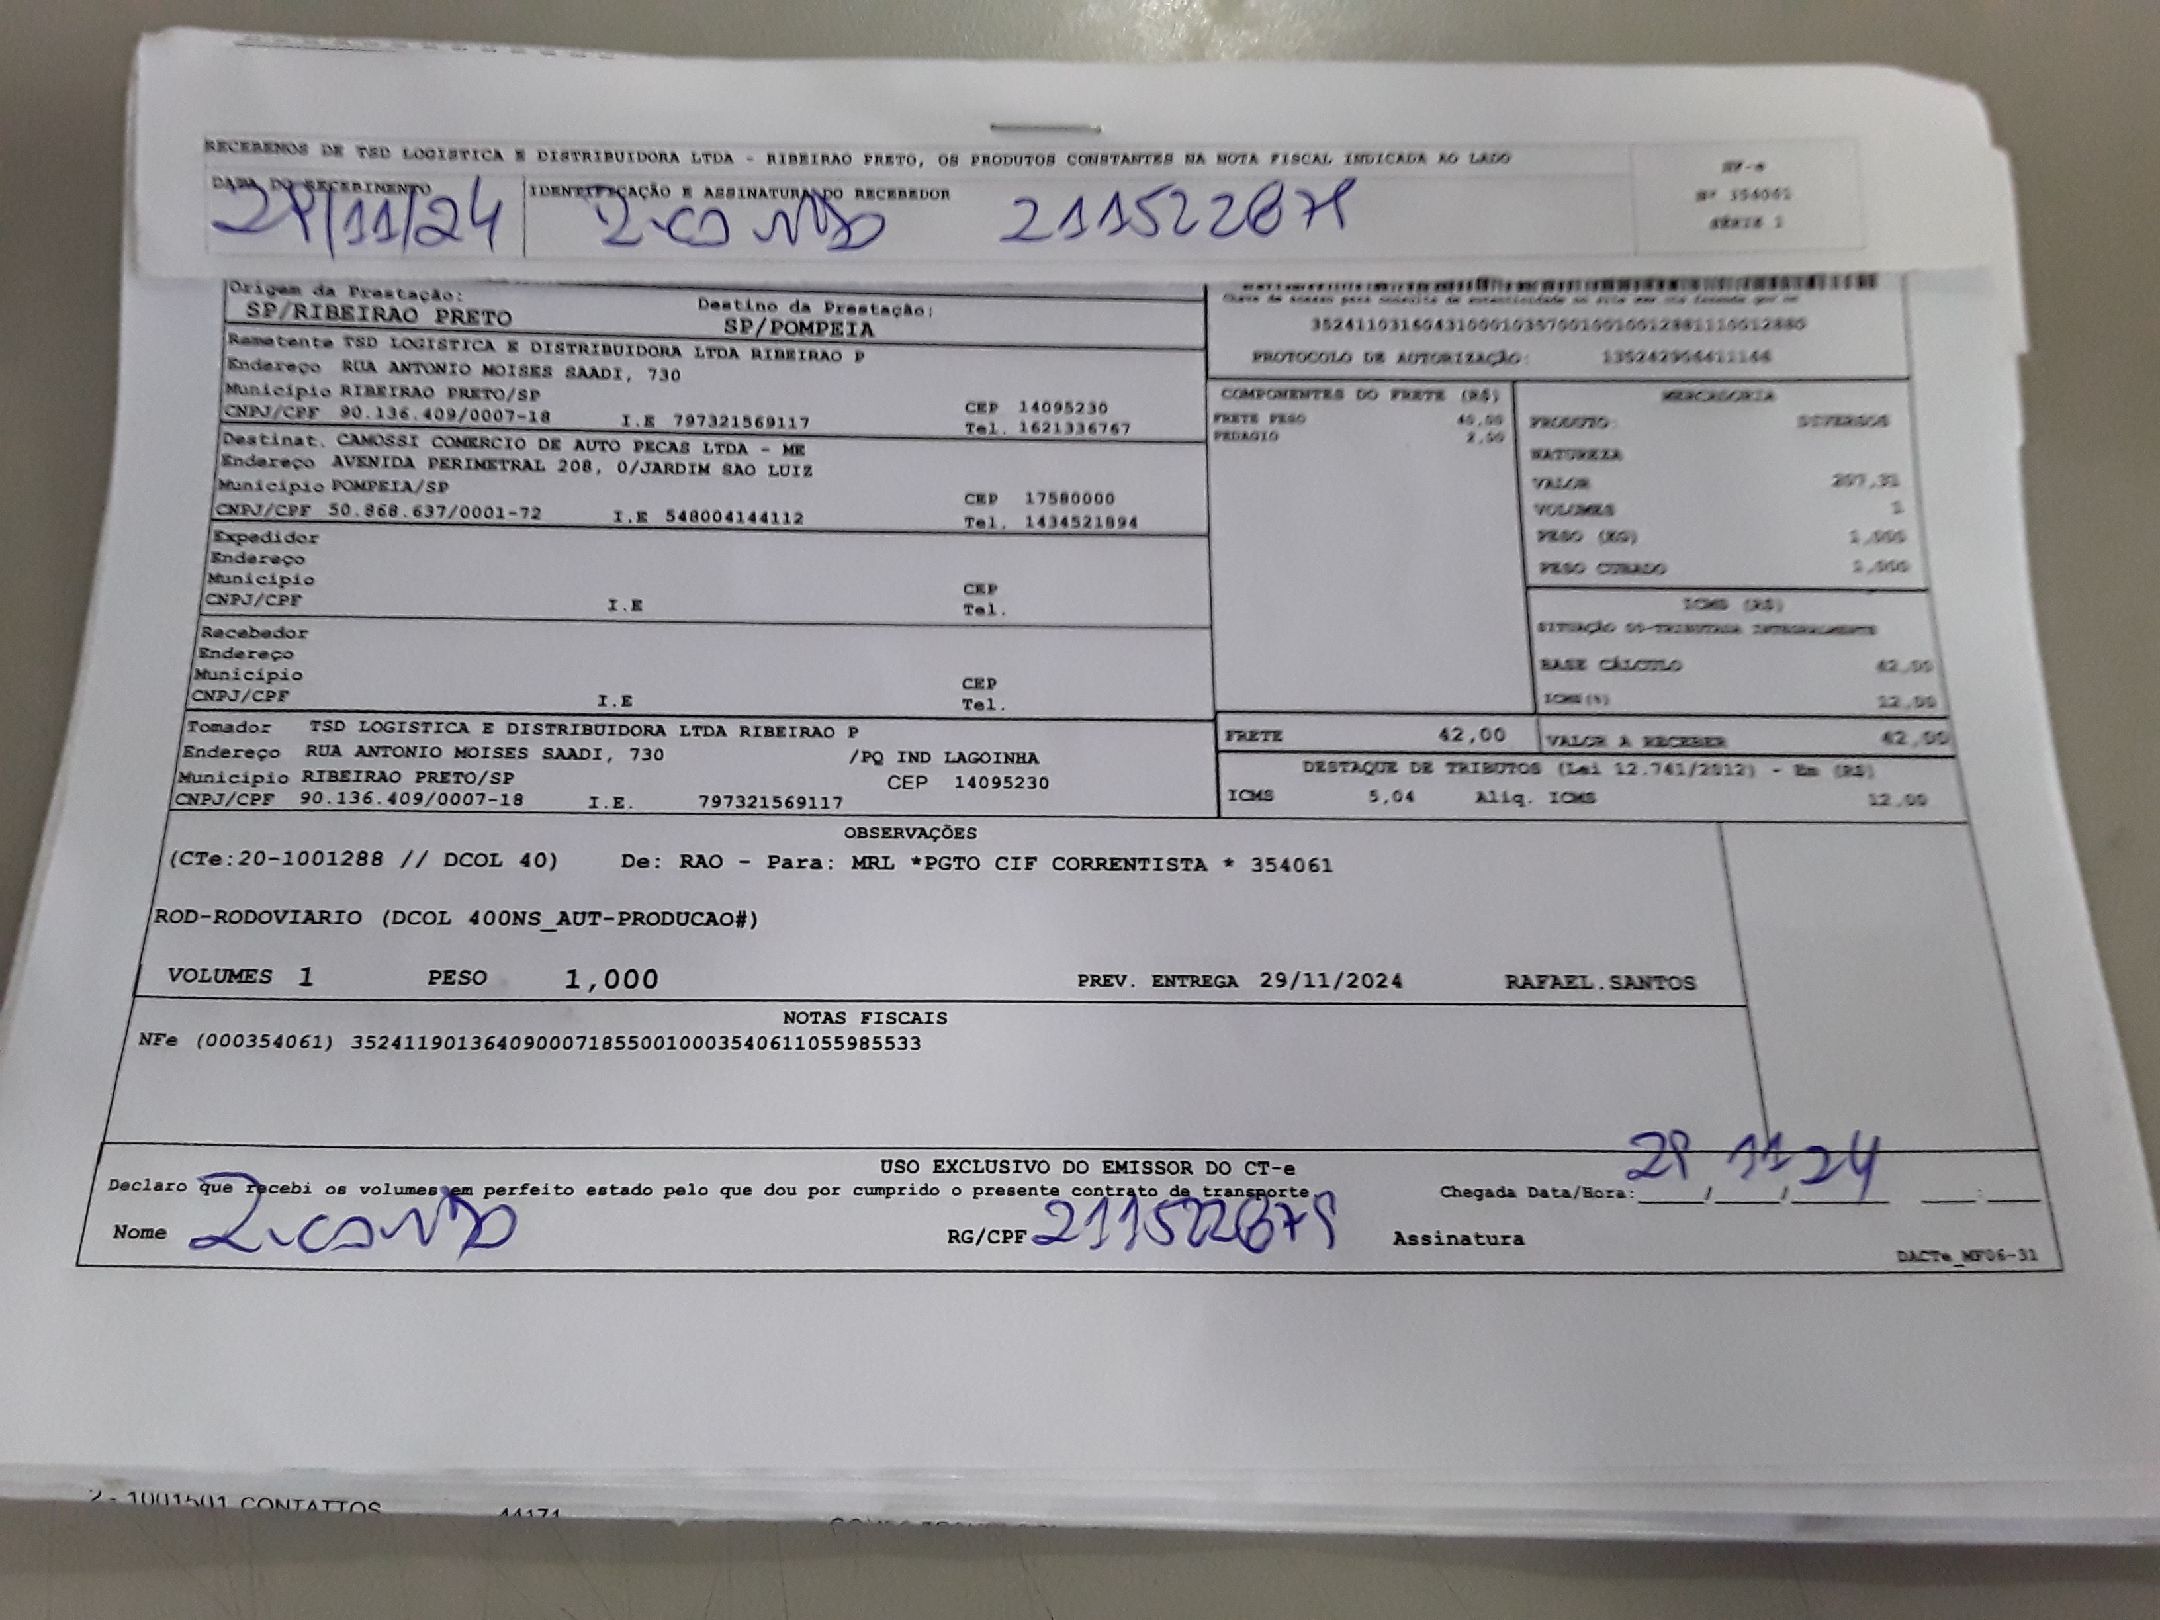 RECEBEMOS DE TSD LOGISTICA E DISTRIBUIDORA LTDA - RIBEIRAO PRETO, OS PRODUTOS CONSTANTES NA NOTA FISCAL INDICADA AO LADO
NF-e
DATA DO RECEBIMENTO IDENTIFICAÇÃO E ASSINATURA DO RECEBEDOR
Nº 354061
/11/24
SÉRIE 1
Origem da Prestação: Destino da Prestação:
SP/RIBEIRAO PRETO SP/POMPEIA
Remetente TSD LOGISTICA E DISTRIBUIDORA LTDA RIBEIRAO P
Endereço RUA ANTONIO MOISES SAADI, 730
Município RIBEIRAO PRETO/SP CEP 14095230
CNPJ/CPF 90.136.409/0007-18 I.E 797321569117 Tel. 1621336767
Destinat. CAMOSSI COMERCIO DE AUTO PECAS LTDA - ME
Endereço AVENIDA PERIMETRAL 208, 0/JARDIM SAO LUIZ
Município POMPEIA/SP CEP 17580000
CNPJ/CPF 50.868.637/0001-72 I.E 548004144112 Tel. 1434521894
Expedidor
Endereço
Município CEP
CNPJ/CPF I.E Tel.
Recebedor
Endereço
Município CEP
CNPJ/CPF I.E Tel.
Tomador TSD LOGISTICA E DISTRIBUIDORA LTDA RIBEIRAO P
Endereço RUA ANTONIO MOISES SAADI, 730 /PQ IND LAGOINHA
Município RIBEIRAO PRETO/SP CEP 14095230
CNPJ/CPF 90.136.409/0007-18 I.E. 797321569117
PROTOCOLO DE AUTORIZAÇÃO:
COMPONENTES DO FRETE (R$)
FRETE PESO 40,00
PEDAGIO 2,00
MERCADORIA
PRODUTO: DIVERSOS
NATUREZA
VALOR 207,31
VOLUMES 1
PESO (KG) 1,000
PESO CUBADO 1,000
ICMS (R$)
SITUAÇÃO 00-TRIBUTADA INTEGRALMENTE
BASE CÁLCULO 42,00
ICMS(%) 12,00
FRETE 42,00 VALOR A RECEBER 42,00
DESTAQUE DE TRIBUTOS (Lei 12.741/2012) - Em (R$)
ICMS 5,04 Aliq. ICMS 12,00
OBSERVAÇÕES
(CTe:20-1001288 // DCOL 40) De: RAO - Para: MRL *PGTO CIF CORRENTISTA * 354061
ROD-RODOVIARIO (DCOL 400NS_AUT-PRODUCAO#)
VOLUMES 1 PESO 1,000 PREV. ENTREGA 29/11/2024 RAFAEL.SANTOS
NOTAS FISCAIS
NFe (000354061) 35241190136409000718550010003540611055985533
USO EXCLUSIVO DO EMISSOR DO CT-e
Declaro que recebi os volumes em perfeito estado pelo que dou por cumprido o presente contrato de transporte
Chegada Data/Hora: 11 24
Nome RG/CPF Assinatura
DACTe_MF06-31
2 - 1001501 CONTATTOS 44171